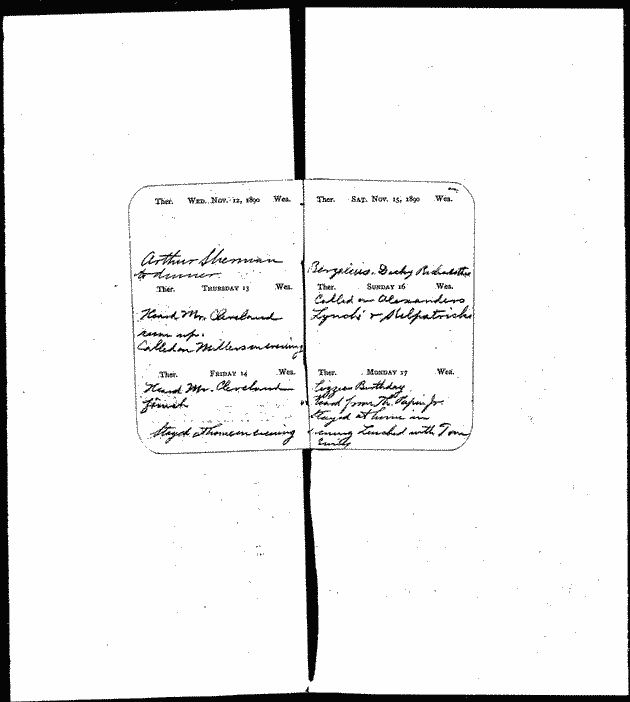 Ther. WED. NOV. 12, 1890 Wea.
Arthur Sherman
to dinner
Ther. THURSDAY 13 Wea.
Heard Mr. Cleveland
sum up.
Called on Millers in evening
Ther. FRIDAY 14 Wea.
Heard Mr. Cleveland
finish
Stayed at home in evening
Ther. SAT. NOV. 15, 1890 Wea.
Ther. SUNDAY 16 Wea.
Called on Alexanders
Lynch's & Kilpatricks
Ther. MONDAY 17 Wea.
Lizzies Birthday
Heard from Th. Jr.
Stayed at home in
evening Lunched with Tom
Emily